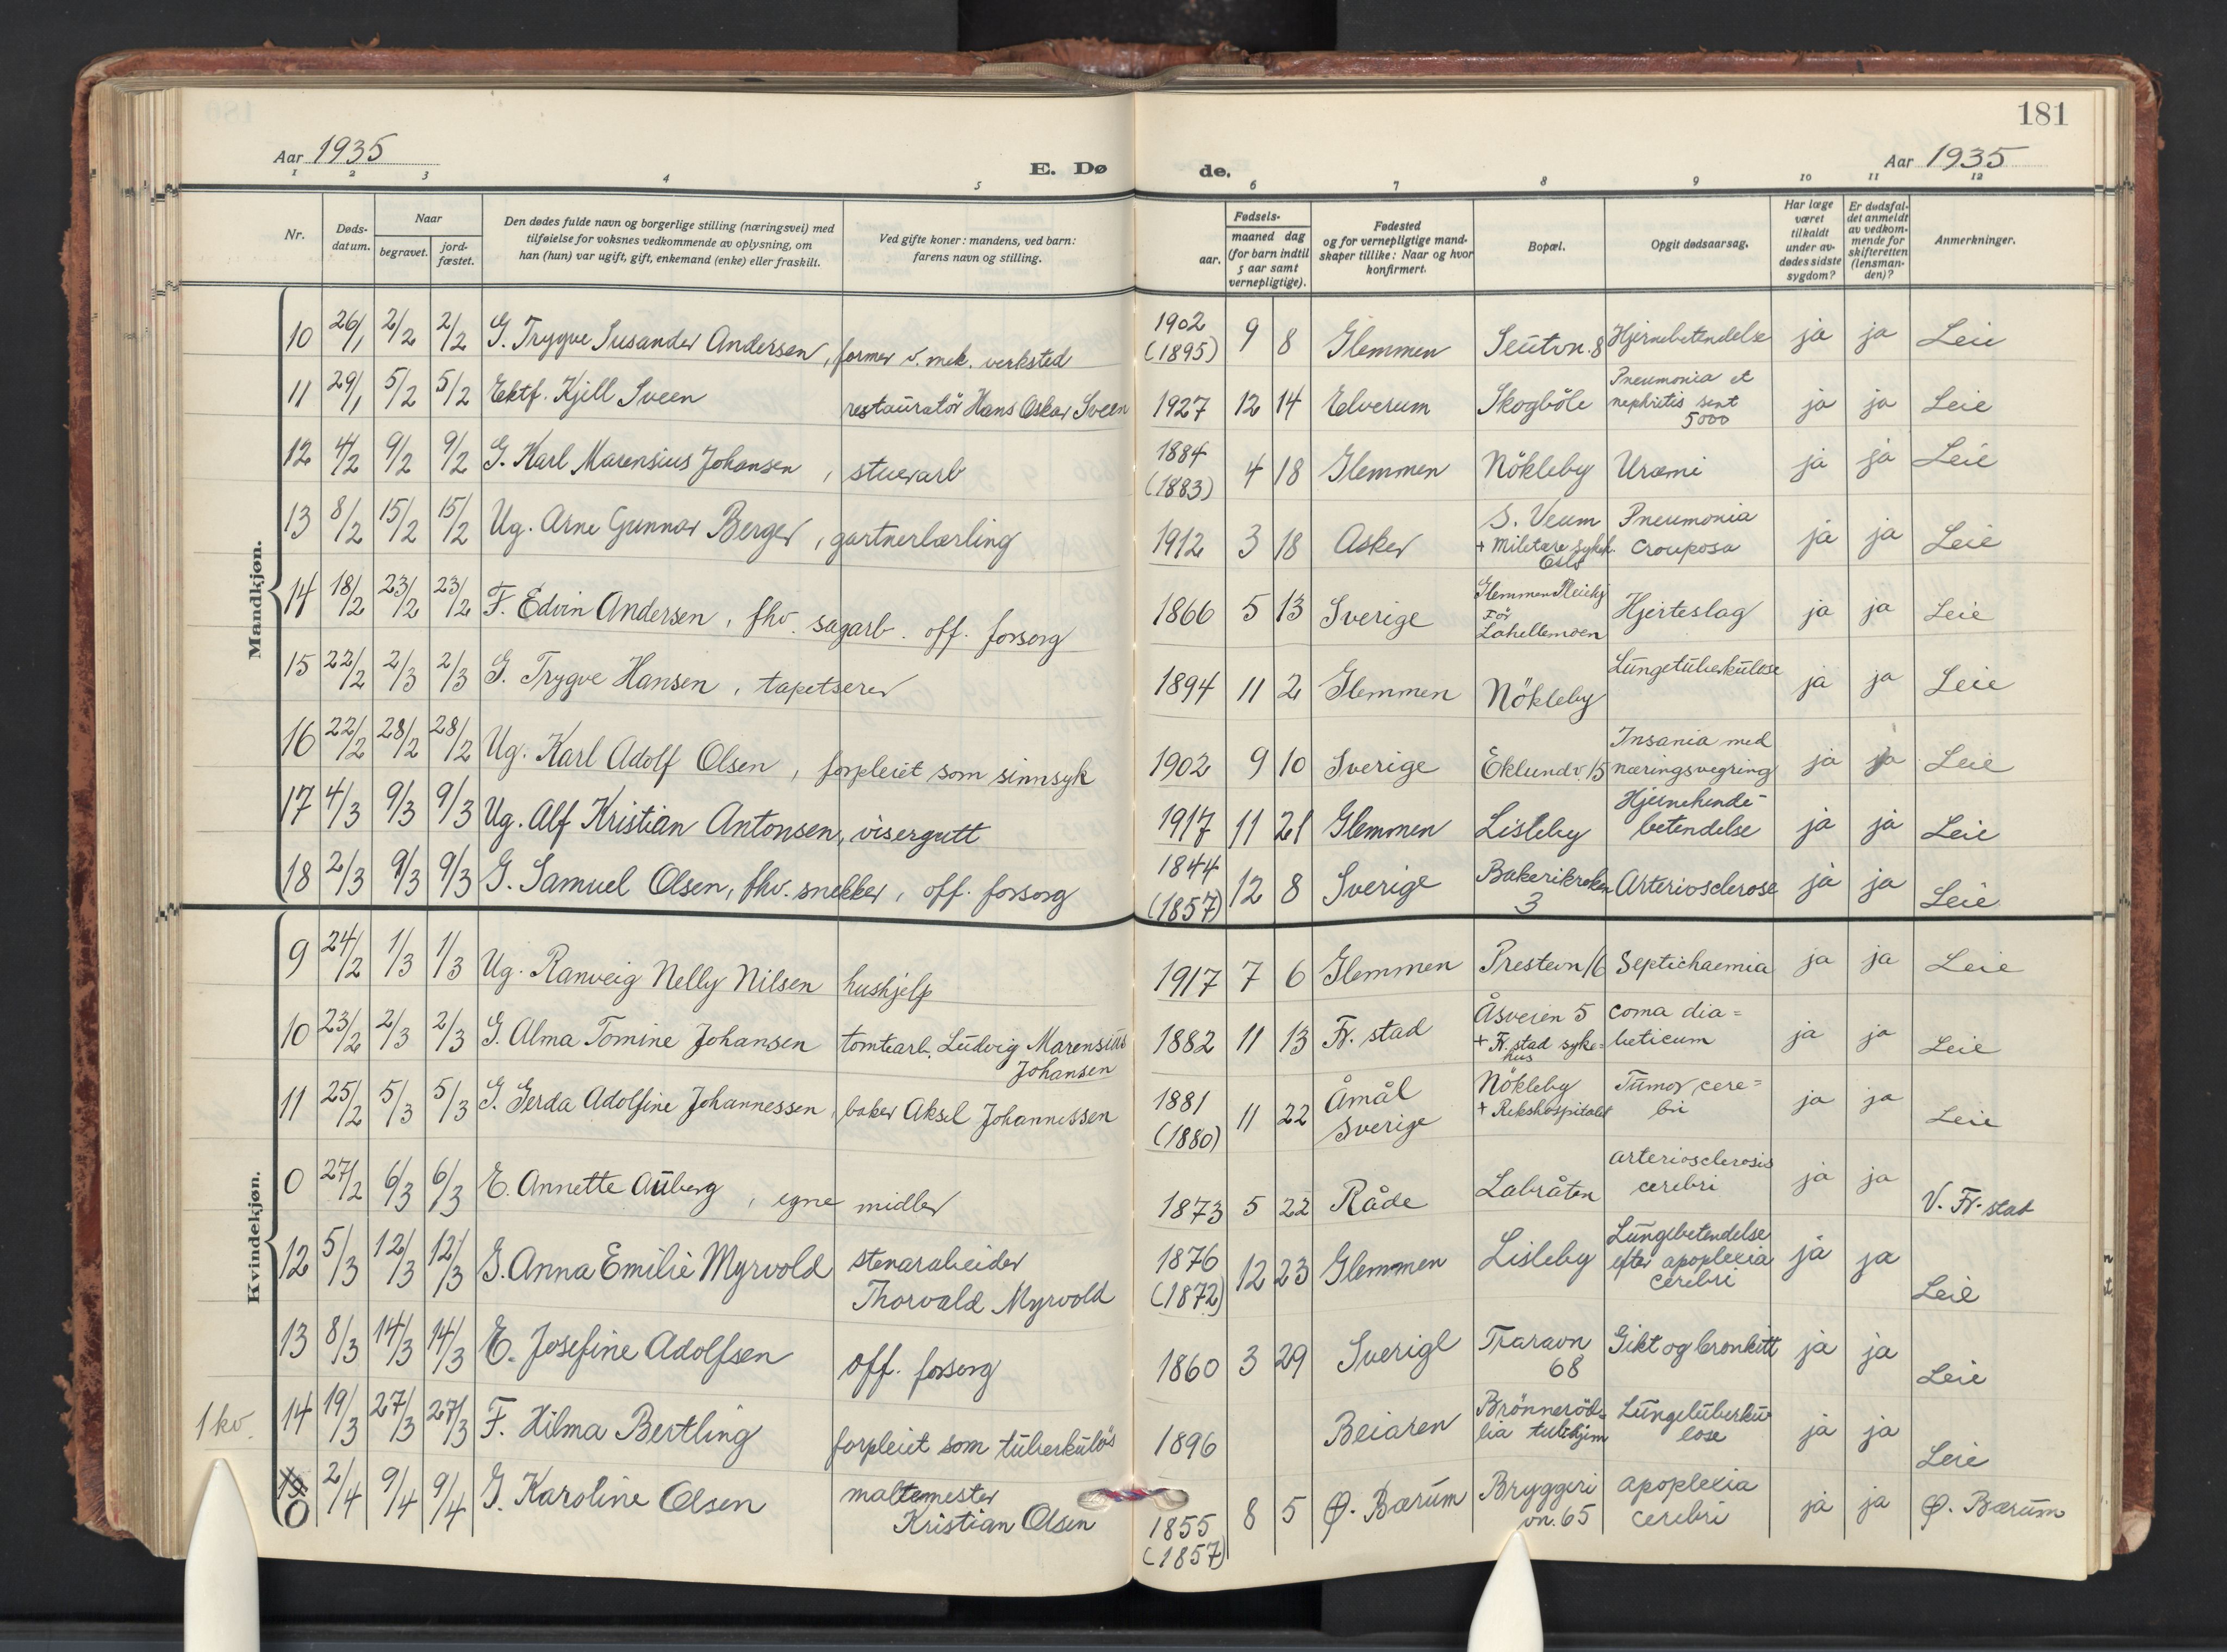 181
Aar 1935
E. Døde.
Aar 1935
1 2 3 4 5 6 7 8 9 10 11 12
Nr.
Døds-datum.
Naar
begravet.
jord-fæstet.
Den dødes fulde navn og borgerlige stilling (næringsvei) med
tilføielse for voksnes vedkommende av oplysning, om
han (hun) var ugift, gift, enkemand (enke) eller fraskilt.
Ved gifte koner: mandens, ved barn:
farens navn og stilling.
Fødsels-
aar.
maaned dag
(for barn indtil
5 aar samt
vernepligtige).
Fødested
og for vernepligtige mand-
skaper tillike: Naar og hvor
konfirmert.
Bopæl.
Opgit dødsaarsag.
Har læge
været
tilkaldt
under av-
dødes sidste
sygdom?
Er dødsfal-
det anmeldt
av vedkom-
mende for
skifteretten
(lensman-
den)?
Anmerkninger.
Mandkjøn.
10 26/1 2/2 2/2 G. Trygve Susander Andersen, former v. mek. verksted 1902 (1895) 9 8 Glemmen Seutvn. 8 Hjernebetendelse ja ja Leie
11 29/1 5/2 5/2 Ektf. Kjell Sveen restauratör Hans Oskar Sveen 1927 12 14 Elverum Skogböle Pneumonia et nephritis sent 5000 ja ja Leie
12 4/2 9/2 9/2 G. Karl Marensius Johansen, stuerarb 1884 (1883) 4 18 Glemmen Nökleby Uræmi ja ja Leie
13 8/2 15/2 15/2 Ug. Arne Gunnar Berger, gartnerlærling 1912 3 18 Asker S. Veum + Militære sykeh. Oslo Pneumonia crouposa ja ja Leie
14 18/2 23/2 23/2 F. Edvin Andersen, fhv. sagarb. off. forsorg 1866 5 13 Sverige Glemmen Pleiehj För Lahellemoen Hjerteslag ja ja Leie
15 22/2 2/3 2/3 G. Trygve Hansen, tapetserer 1894 11 2 Glemmen Nökleby Lungetuberkulose ja ja Leie
16 22/2 28/2 28/2 Ug. Karl Adolf Olsen, forpleiet som sinnsyk 1902 9 10 Sverige Eklundv. 15 Insania med næringsvegring ja ja Leie
17 4/3 9/3 9/3 Ug. Alf Kristian Antonsen, visergutt 1917 11 21 Glemmen Lisleby Hjernehinde-betendelse ja ja Leie
18 2/3 9/3 9/3 G. Samuel Olsen, fhv. snekker, off. forsorg 1844 (1857) 12 8 Sverige Bakerikroken 3 Arteriosclerose ja ja Leie
Kvindekjøn.
9 24/2 1/3 1/3 Ug. Ranveig Nelly Nilsen hushjelp 1917 7 6 Glemmen Prestevn 16 Septichaemia ja ja Leie
10 23/2 2/3 2/3 G. Alma Tomine Johansen tomtearb. Ludvig Marensius Johansen 1882 11 13 Fr. stad Åsveien 5 + Fr. stad syke=hus coma dia=beticum ja ja Leie
11 25/2 5/3 5/3 G. Gerda Adolfine Johannessen, baker Aksel Johannessen 1881 (1880) 11 22 Åmål Sverige Nökleby + Rikshospitalet Tumor cere=bri ja ja Leie
0 27/2 6/3 6/3 E. Annette Auberg, egne midler 1873 5 22 Råde Labråten arteriosclerosis cerebri ja ja V. Fr. stad
12 5/3 12/3 12/3 G. Anna Emilie Myrvold stenarabeider Thorvald Myrvold 1876 (1872) 12 23 Glemmen Lisleby Lungebetendelse efter apoplexia cerebri ja ja Leie
13 8/3 14/3 14/3 E. Josefine Adolfsen off. forsorg 1860 3 29 Sverige Traravn 68 Gikt og bronkitt ja ja Leie
1 kv.
14 19/3 27/3 27/3 F. Hilma Bertling forpleiet som tuberkulös 1896 Beiaren Brönneröd=lia tubhjem Lungetuberkulose ja ja Leie
0 2/4 9/4 9/4 G. Karoline Olsen maltemester Kristian Olsen 1855 (1857) 8 5 Ø. Bærum Bryggeri vn. 65 apoplexia cerebri ja ja Ø. Bærum